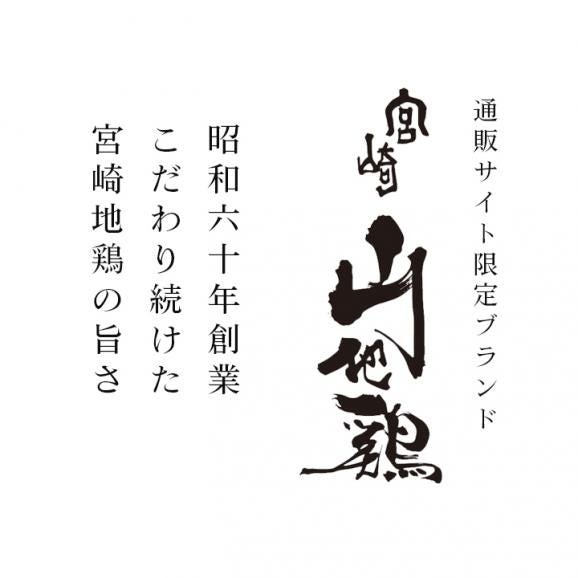 通販サイト限定ブランド
宮崎
山地鶏
昭和六十年創業
こだわり続けた
宮崎地鶏の旨さ